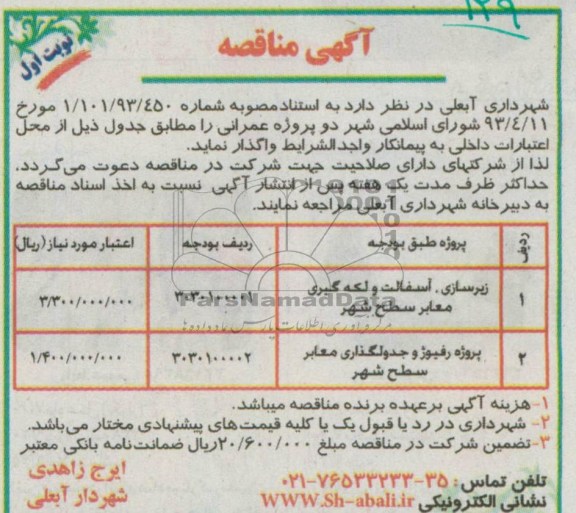 ۱۲۹
آگهی مناقصه
نوبت اول
شهرداری آبعلی در نظر دارد به استناد مصوبه شماره ۱/۱۰۱/۹۳/٤٥۰ مورخ
۹۳/٤/۱۱ شورای اسلامی شهر دو پروژه عمرانی را مطابق جدول ذیل از محل
اعتبارات داخلی به پیمانکار واجدالشرایط واگذار نماید.
لذا از شرکتهای دارای صلاحیت جهت شرکت در مناقصه دعوت می‌گردد.
حداکثر ظرف مدت یک هفته پس از انتشار آگهی نسبت به اخذ اسناد مناقصه
به دبیرخانه شهرداری آبعلی مراجعه نمایند.
ردیف پروژه طبق بودجه ردیف بودجه اعتبار مورد نیاز (ریال)
۱ زیرسازی . آسفالت و لکه گیری معابر سطح شهر ۳/۳۰۰/۰۰۰/۰۰۰
۲ پروژه رفیوژ و جدولگذاری معابر سطح شهر ۳۰۳۰۱۰۰۰۰۲ ۱/۴۰۰/۰۰۰/۰۰۰
ParsNamadData
مرکز فرآوری اطلاعات پارس نماد داده ها
۱-هزینه آگهی برعهده برنده مناقصه میباشد.
۲- شهرداری در رد یا قبول یک یا کلیه قیمت‌های پیشنهادی مختار می‌باشد.
۳-تضمین شرکت در مناقصه مبلغ ۲۰/۶۰۰/۰۰۰ریال ضمانت‌نامه بانکی معتبر
تلفن تماس: ۳۵-۷۶۵۳۳۲۳۳-۰۲۱
نشانی الکترونیکی WWW.Sh-abali.ir
ایرج زاهدی
شهردار آبعلی